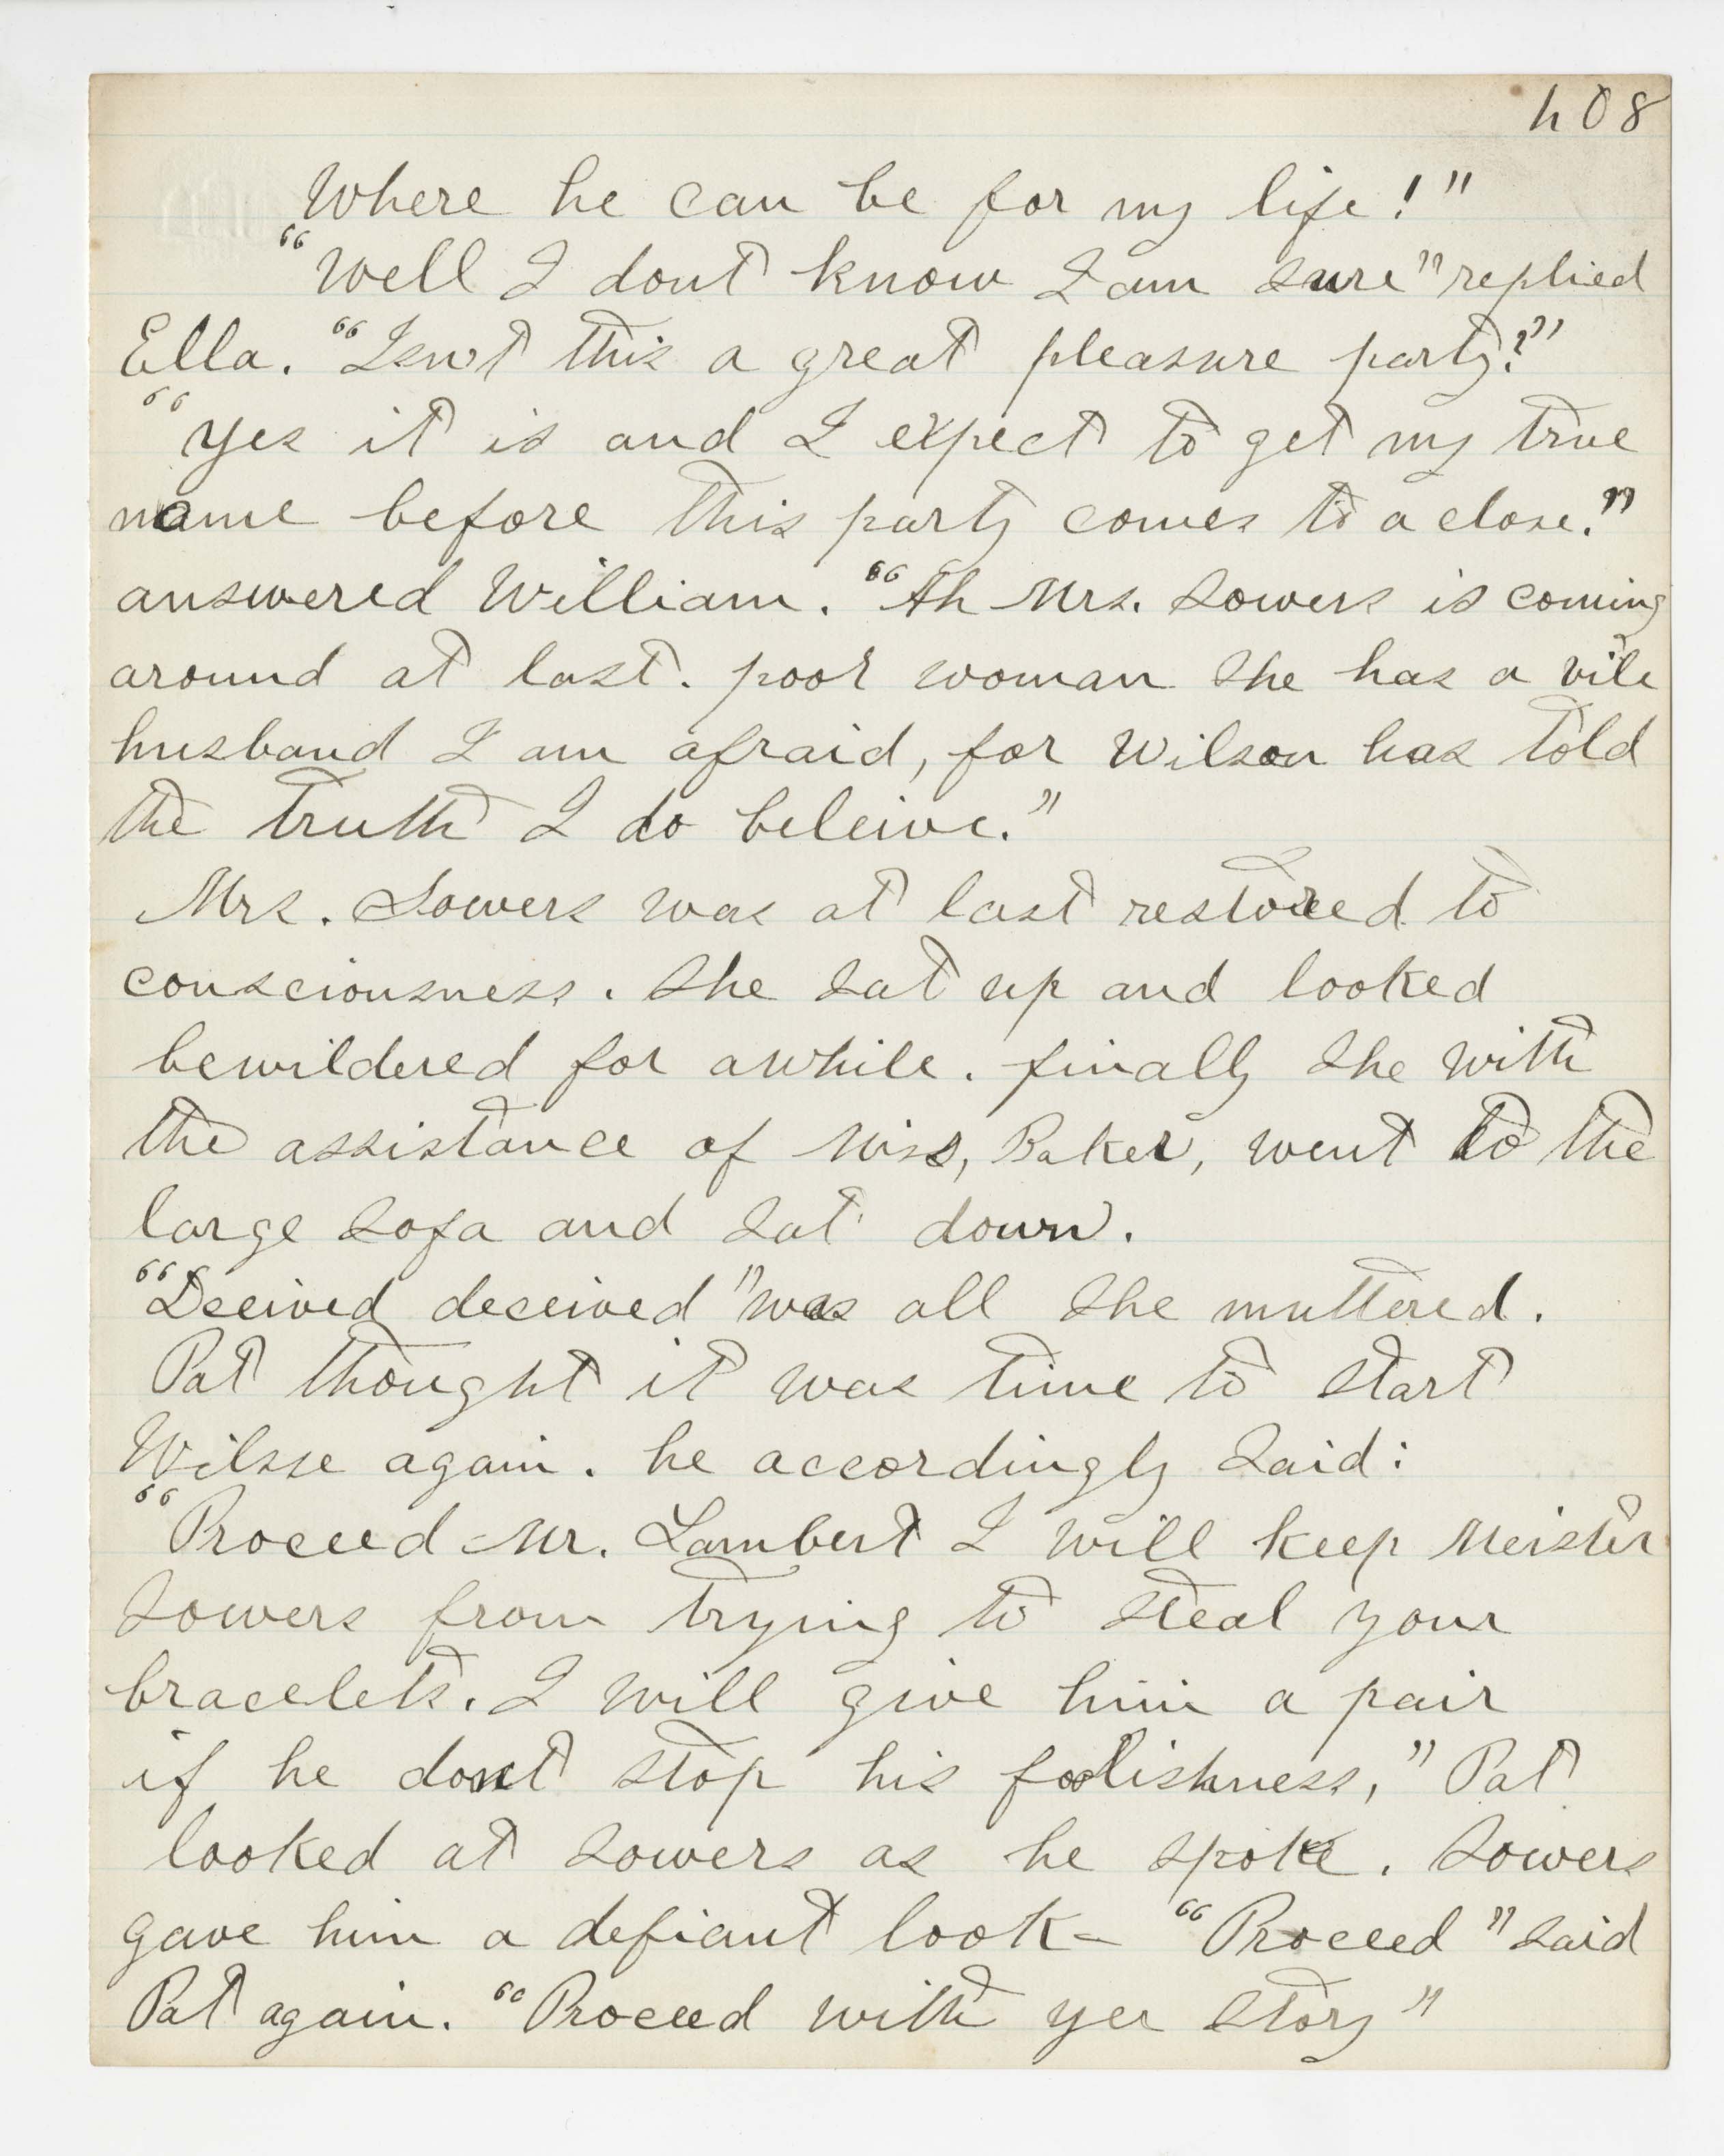 408
Where he can be for my life!"
"Well I dont know I am sure" replied
Ella. "Isn't this a great pleasure party?"
"Yes it is and I expect to get my true
name before this party comes to a close."
answered William. "Ah Mrs. Sowers is coming
around at last. poor woman she has a vile
husband I am afraid, for Wilson has told
the truth I do beleive."
Mrs. Sowers was at last restored to
consciousness. She sat up and looked
bewildered for awhile. finally she with
the assistance of Miss, Baker, went to the
large sofa and sat down.
"Deceived deceived" was all she muttered.
Pat thought it was time to start
Wilsse again. he accordingly said:
"Proceed Mr. Lambert I will keep Meister
Sowers from trying to steal your
bracelets. I will give him a pair
if he dont stop his foolishness," Pat
looked at Sowers as he spoke. Sowers
gave him a defiant look- "Proceed" said
Pat again. "Proceed with yer story"